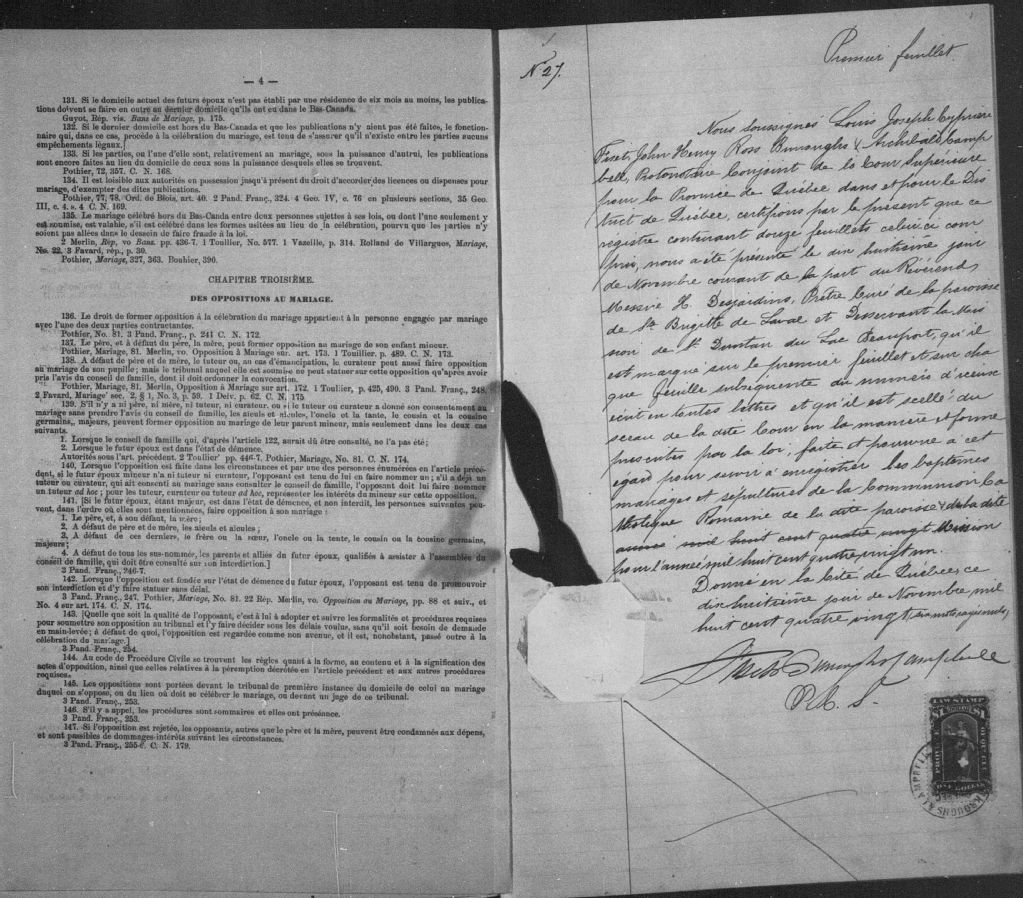 — 4 —
131. Si le domicile actuel des futurs époux n'est pas établi par une résidence de six mois au moins, les publica-
tions doivent se faire en outre au dernier domicile qu'ils ont eu dans le Bas-Canada.
Guyot, Rép. vis. Bans de Mariage, p. 175.
132. Si le dernier domicile est hors du Bas-Canada et que les publications n'y aient pas été faites, le fonction-
naire qui, dans ce cas, procède à la célébration du mariage, est tenu de s'assurer qu'il n'existe entre les parties aucuns
empêchements légaux.]
133. Si les parties, ou l'une d'elle sont, relativement au mariage, sous la puissance d'autrui, les publications
sont encore faites au lieu du domicile de ceux sous la puissance desquels elles se trouvent.
Pothier, 72, 357. C. N. 168.
134. Il est loisible aux autorités en possession jusqu'à présent du droit d'accorder des licences ou dispenses pour
mariage, d'exempter des dites publications.
Pothier, 77, 78. Ord. de Blois, art. 40. 2 Pand. Franç., 324. 4 Geo. IV, c. 76 en plusieurs sections, 35 Geo.
III, c. 4. s. 4 C. N. 169.
135. Le mariage célébré hors du Bas-Canda entre deux personnes sujettes à ses lois, ou dont l'une seulement y
est soumise, est valable, s'il est célébré dans les formes usitées au lieu de la célébration, pourvu que les parties n'y
soient pas allées dans le dessein de faire fraude à la loi.
2 Merlin, Rép, vo Bans. pp. 436-7. 1 Toullier, No. 577. 1 Vazeille, p. 314. Rolland de Villargues, Mariage,
No. 22. 3 Favard, rép., p. 30.
Pothier, Mariage, 327, 363. Bouhier, 390.
CHAPITRE TROISIÈME.
DES OPPOSITIONS AU MARIAGE.
136. Le droit de former opposition à la célébration du mariage appartient à la personne engagée par mariage
avec l'une des deux parties contractantes.
Pothier, No. 81. 3 Pand. Franç., p. 241 C. N. 172.
137. Le père, et à défaut du père, la mère, peut former opposition au mariage de son enfant mineur.
Pothier, Mariage, 81. Merlin, vo. Opposition à Mariage sur. art. 173. 1 Touillier, p. 489. C. N. 173.
138. A défaut de père et de mère, le tuteur ou, au cas d'émancipation, le curateur peut aussi faire opposition
au mariage de son pupille; mais le tribunal auquel elle est soumise ne peut statuer sur cette opposition qu'après avoir
pris l'avis du conseil de famille, dont il doit ordonner la convocation.
Pothier, Mariage, 81. Merlin, Opposition à Mariage sur art. 172. 1 Toullier, p. 425, 490. 3 Pand. Franç., 248.
2 Favard, Mariage' sec. 2, § 1, No. 3, p. 59. 1 Delv. p. 62. C. N. 175
139. S'il n'y a ni père, ni mère, ni tuteur, ni curateur, ou si le tuteur ou curateur a donné son consentement au
mariage sans prendre l'avis du conseil de famille, les aïeuls et aïeules, l'oncle et la tante, le cousin et la cousine
germains, majeurs, peuvent former opposition au mariage de leur parent mineur, mais seulement dans les deux cas
suivants.
1. Lorsque le conseil de famille qui, d'après l'article 122, aurait dû être consulté, ne l'a pas été;
2. Lorsque le futur époux est dans l'état de démence.
Autorités sous l'art. précédent. 2 Toullier pp. 446-7. Pothier, Mariage, No. 81. C. N. 174.
140. Lorsque l'opposition est faite dans les circonstances et par une des personnes énumérées en l'article précé-
dent, si le futur époux mineur n'a ni tuteur ni curateur, l'opposant est tenu de lui en faire nommer un; s'il a déjà un
tuteur ou curateur, qui ait consenti au mariage sans consulter le conseil de famille, l'opposant doit lui faire nommer
un tuteur ad hoc; pour les tuteur, curateur ou tuteur ad hoc, représenter les intérêts du mineur sur cette opposition.
141. [Si le futur époux, étant majeur, est dans l'état de démence, et non interdit, les personnes suivantes peu-
vent, dans l'ordre où elles sont mentionnées, faire opposition à son mariage:
1. Le père, et, à son défaut, la mère;
2. A défaut de père et de mère, les aïeuls et aïeules;
3. A défaut de ces derniers, le frère ou la sœur, l'oncle ou la tante, le cousin ou la cousine germains,
majeurs;
4. A défaut de tous les sus-nommés, les parents et alliés du futur époux, qualifiés à assister à l'assemblée du
conseil de famille, qui doit être consulté sur son interdiction.]
3 Pand. Franç., 246-7.
142. Lorsque l'opposition est fondée sur l'état de démence du futur époux, l'opposant est tenu de promouvoir
son interdiction et d'y faire statuer sans délai.
3 Pand. Franç., 247. Pothier, Mariage, No. 81. 22 Rép. Merlin, vo. Opposition au Mariage, pp. 88 et suiv., et
No. 4 sur art. 174. C. N. 174.
143. [Quelle que soit la qualité de l'opposant, c'est à lui à adopter et suivre les formalités et procédures requises
pour soumettre son opposition au tribunal et y faire décider sons les délais voulus, sans qu'il soit besoin de demande
en main-levée; à défaut de quoi, l'opposition est regardée comme non avenue, et il est, nonobstant, passé outre à la
célébration du mariage.]
3 Pand. Franç., 254.
144. Au code de Procédure Civile se trouvent les règles quant à la forme, au contenu et à la signification des
actes d'opposition, ainsi que celles relatives à la péremption décrétée en l'article précédent et aux autres procédures
requises.
145. Les oppositions sont portées devant le tribunal de première instance du domicile de celui au mariage
duquel on s'oppose, ou du lieu où doit se célébrer le mariage, ou devant un juge de ce tribunal.
3 Pand. Franç., 253.
146. S'il y a appel, les procédures sont sommaires et elles ont préséance.
3 Pand. Franç., 253.
147. Si l'opposition est rejetée, les opposants, autres que le père et la mère, peuvent être condamnés aux dépens,
et sont passibles de dommages-intérêts suivant les circonstances.
3 Pand. Franç., 255-6. C. N. 179.
1
Premier feuillet.
N. 27.
Nous soussignés Louis Joseph Cyprien
Fiset, John Henry Ross Burroughs & Archibald Camp
bell, Protonotaire Conjoint de la Cour Supérieure
pour la Province de Québec dans et pour le Dis
trict de Québec, certifions par le présent que ce
registre contenant douze feuillets celui ci com
pris, nous a été présenté le dix huitième jour
de Novembre courant de la part du Révérend
Messire H. Desjardins, Prêtre Curé de la paroisse
de Ste Brigitte de Laval et Desservant la Mis
sion de St Dunstan du Lac Beauport, qu'il
est marqué sur le premier feuillet et sur cha
que feuille subséquente du numéro d'iceux
écrit en toutes lettres et qu'il est scellé du
sceau de la dite Cour en la manière et forme
prescrites par la loi, faite et pourvue à cet
égard pour servir à enregistrer les baptêmes
mariages et sépultures de la Communion Ca
tholique Romaine de la dite paroisse & de la dite
année mil huit cent quatre vingt Mission
pour l'année mil huit cent quatre vingt un.
Donné en la Cité de Québec, ce
dix huitième jour de Novembre mil
huit cent quatre vingt,
Fiset Burroughs Campbell
P. C. S.
LAW STAMP
$1 $1
ONE DOLLAR
BURROUGHS & CAMPBELL